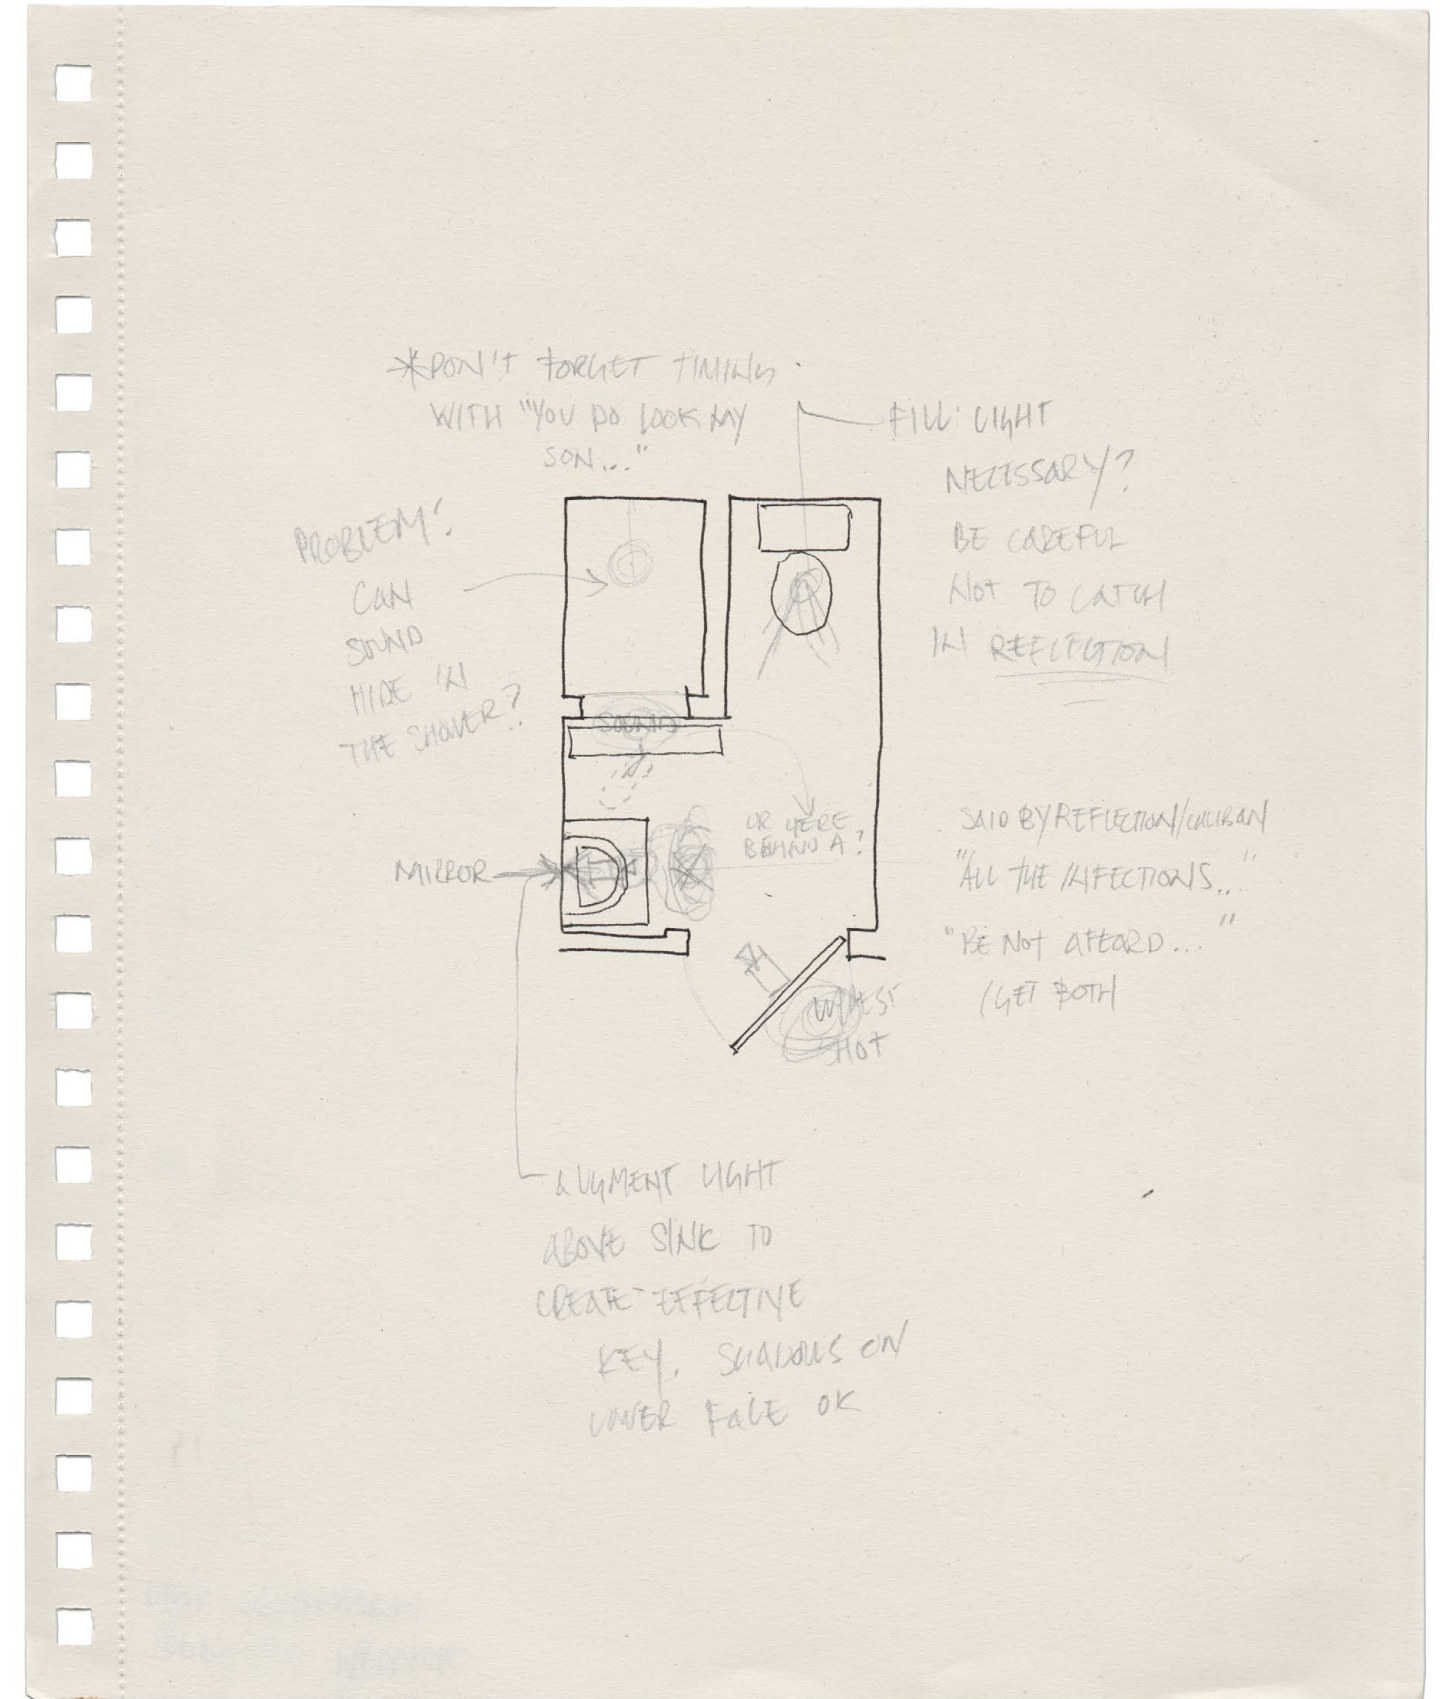 *DON'T FORGET TIMING
WITH "YOU DO LOOK MY
SON..."
FILL: LIGHT
NECESSARY?
BE CAREFUL
NOT TO CATCH
IN REFLECTION
PROBLEM:
CAN
SOUND
HIDE IN
THE SHOWER?
SOUND
OR HERE
BEHIND A?
MIRROR
SAID BY REFLECTION/CALIBAN
"ALL THE INFECTIONS..."
"BE NOT AFEARD..."
(GET BOTH
SHOT
AUGMENT LIGHT
ABOVE SINK TO
CREATE EFFECTIVE
KEY. SHADOWS ON
LOWER FACE OK